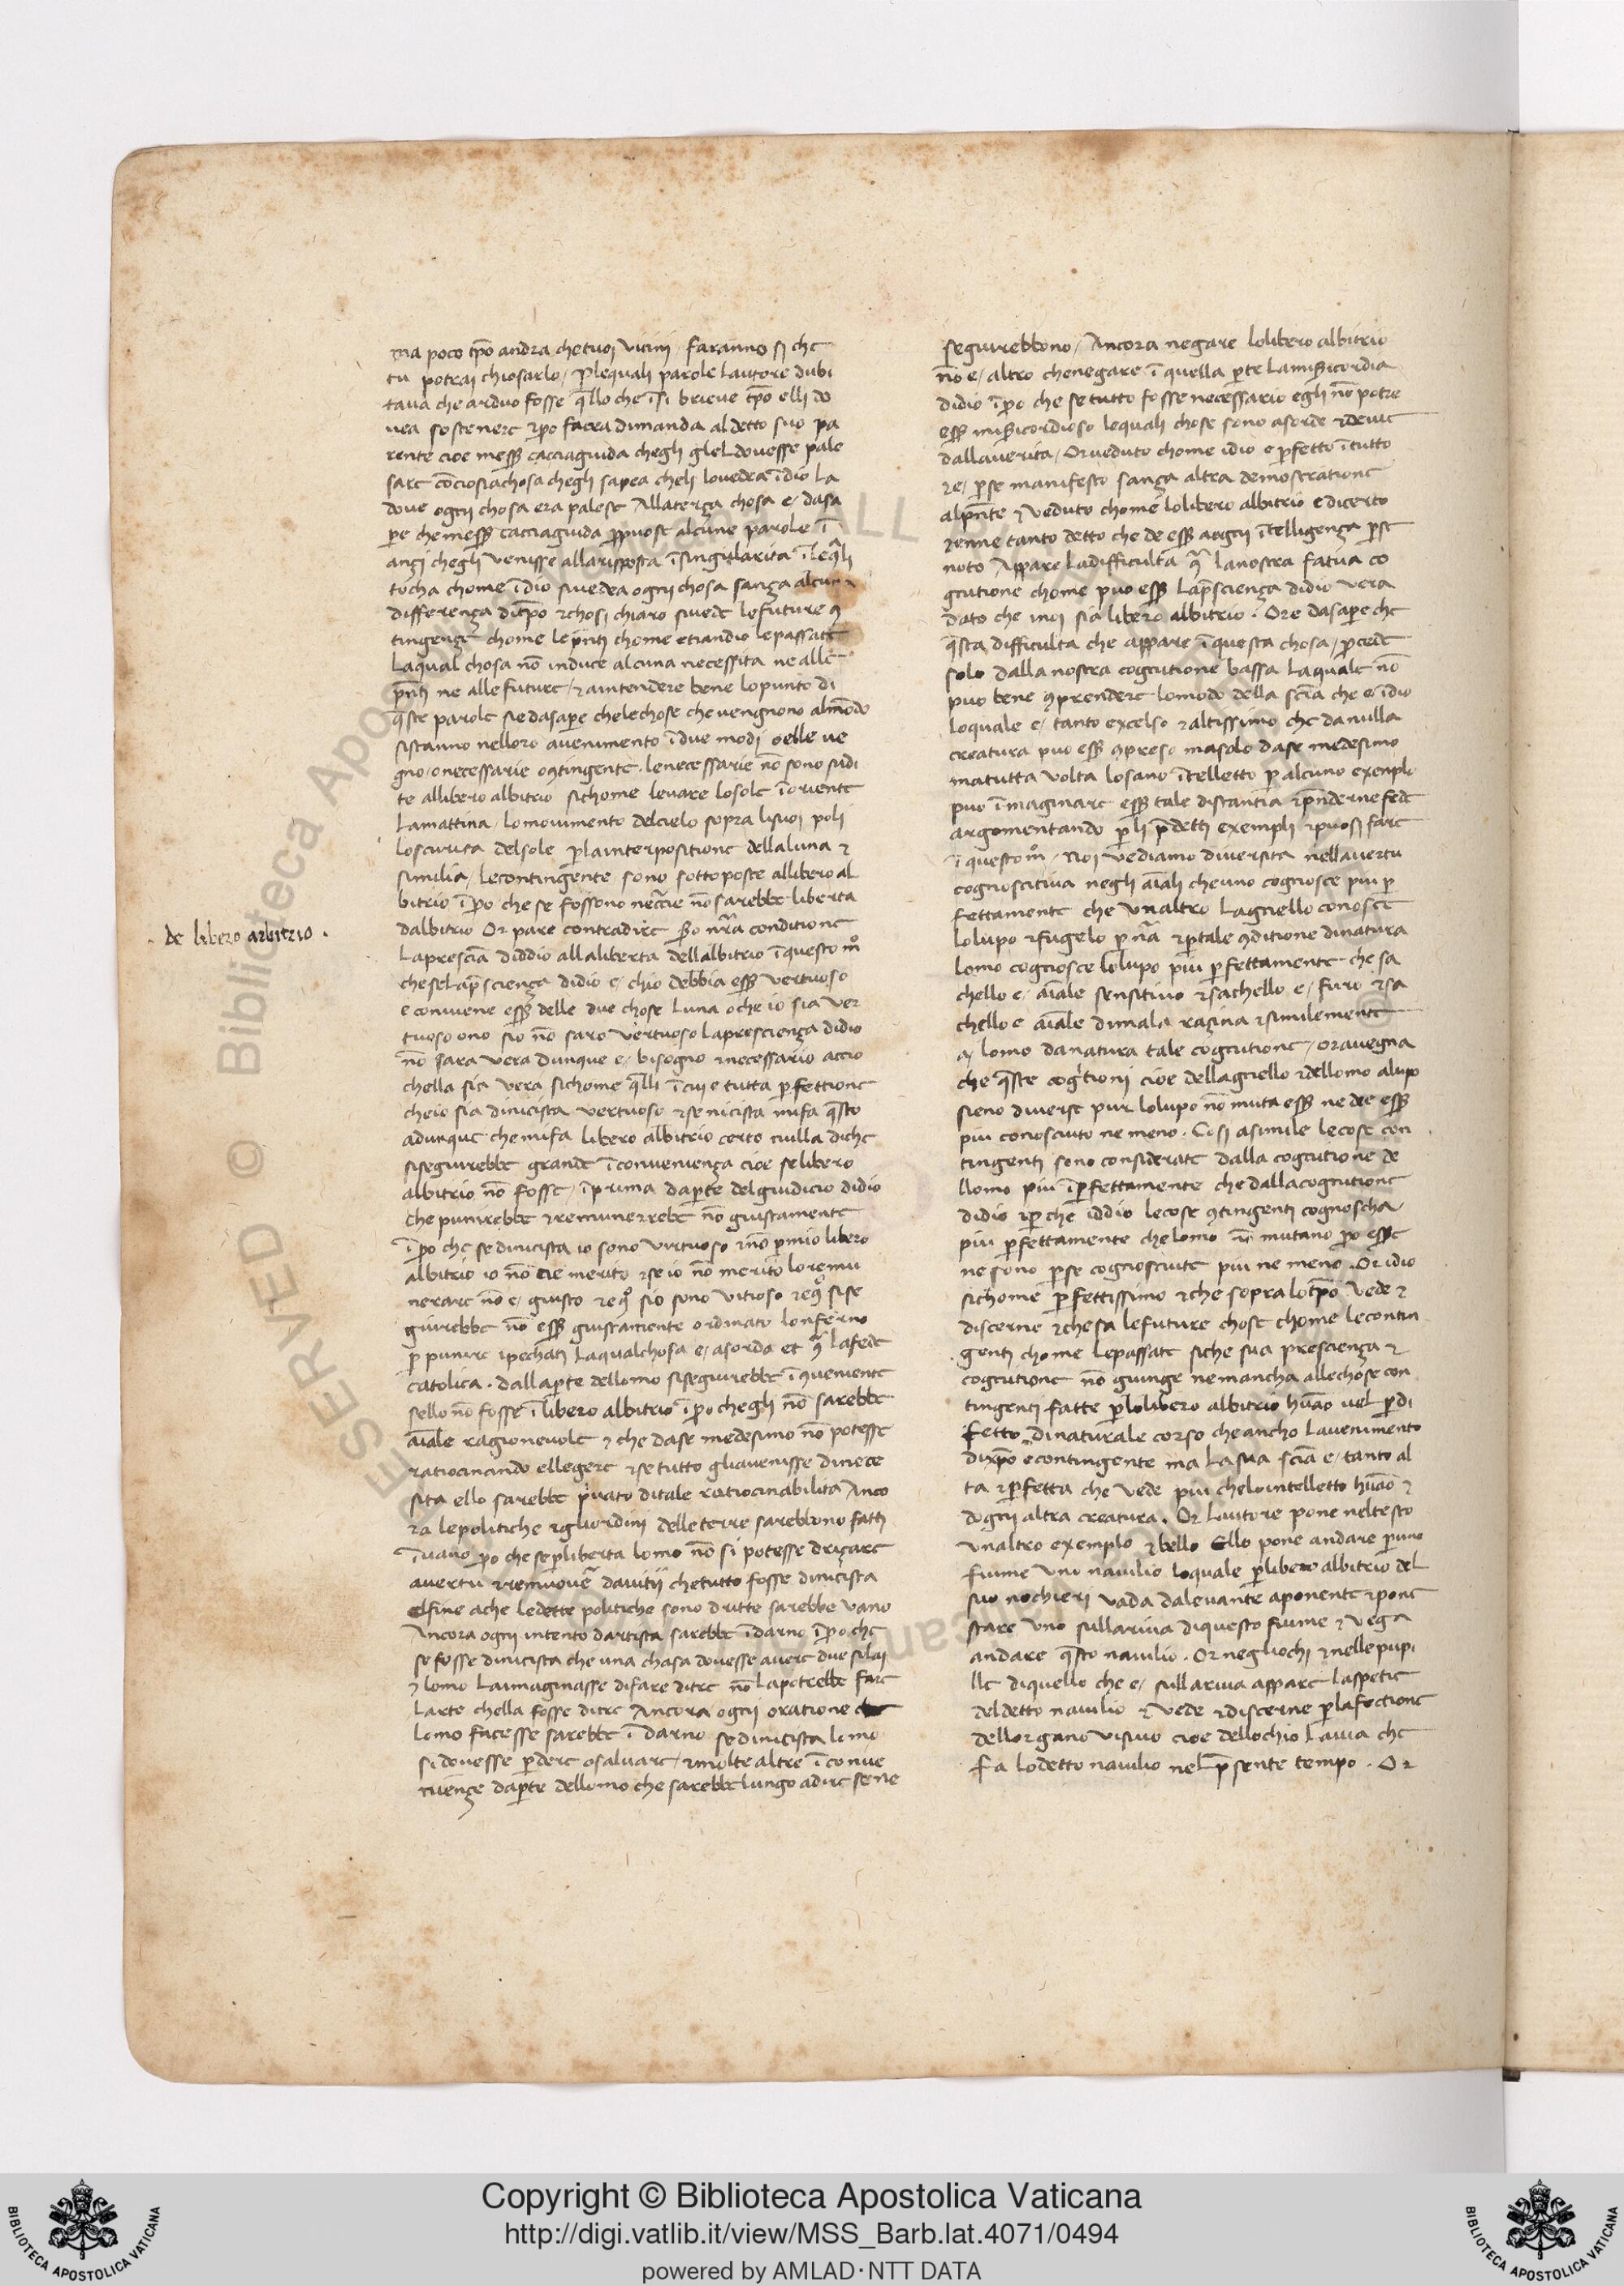 ma poco tp̄o andra che tuoi vicini faranno si che
tu potrai chiosarlo / Plequali parole lautore dubi
tava che arduo fosse q̄llo che ī si brieve tp̄o elli do
vea sostenere ꝛpo facea dimanda al detto suo pa
rente cioe mess̄ cacciaguida chegli glel dovesse pale
sare cōciosiachosa chegli sapea cheli lo vedea ī dio la
dove ogni chosa era palese Alla terça chosa e / da sa
pe che mess̄ cacciaguida ppuose alcune parole ī
ançi chegli venisse alla risposta ī singularita ī leq̄li
tocha chome ī dio si vedea ogni chosa sança alcuna
differença di tp̄o ꝛchosi chiaro si vede le future ꝯ
tingençe chome le p̄nti chome etiandio le passate
La qual chosa nō induce alcuna necessita ne alle
p̄nti ne alle future / ꝛa intendere bene lo punto di
q̄ste parole sie da sape che le chose che vengnono al mōdo
si stanno nelloro avenimento ī due modi o elle ve
gno / o necessarie o ꝯtingente . le necessarie nō sono sudi
te allibero albitrio sichome levare lo sole ī oriente
La mattina / lo movimento del cielo sopra li suoi poli
Loscurita del sole p la interpositione della luna ꝛ
similia / Le contingente sono sottoposte allibero al
bitrio ī po che se fossono neccīe nō sarebbe liberta
dalbitrio Or pare contradire Po nr̄a conditione
La presciā diddio alla liberta dellalbitrio ī questo m̊
che se lap̄sciença didio e / chio debbia ess̄ vertuoso
e conviene ess̄ delle due chose luna o che io sia ver
tuoso o no sio nō saro vertuoso la presciença didio
nō sara vera dunque e / bisogno ꝛnecessario accio
chella sia vera sichome q̄lli ī cui e tutta pfettione
che io sia di nicista vertuoso ꝛse nicista mi fa q̄sto
adunque che mi fa libero albitrio certo nulla di che
si seguirebbe grande ī convenienza cioe se libero
albitrio nō fosse / ī prima da pte del giudicio didio
che punirebbe ꝛremunerrebē nō giustamente
ī po che se di nicista io sono virtuoso ꝛnō p mio libero
albitrio io nō cie merito ꝛse io nō merito lo remu
nerare nō e / giusto ꝛeꝯ̊ sio sono vitioso ꝛeꝯ̊ si se
guirebbe nō ess̄ giustamente ordinato lonferno
p punire i pechati La qual chosa e / asorda et ꝯ̄ la fede
catolica . dalla pte dellomo si seguirebbe ī ꝯveniente
sello nō fosse ī libero albitrio ī po chegli nō sarebbe
aīale ragionevole ꝛ che da se medesimo nō potesse
ratiocinando ellegere ꝛse tutto gli avenisse di nece
sita ello sarebbe privato di tale ratiocinabilita Anco
ra le politiche ꝛgli ordini delle terre sarebbono fatti
ī vano po che se p liberta lomo nō si potesse driçare
a vertu ꝛremuovē da vitii che tutto fosse di nicista
el fine a che le dette politiche sono dritte sarebbe vano
Ancora ogni intento dartista sarebbe ī darno ī po che
se fosse di nicista che una chasa dovesse avere due solai
ꝛ lomo la imaginasse di fare di tre nō la potrebbe fare
Larte chella fosse di tre Ancora ogni oratione che
lomo facesse sarebbe ī darno se di nicista lomo
si dovesse pdere o salvare / ꝛmolte altre ī conve
niençe da pte dellomo che sarebbe lungo a dire se ne
. de libero arbitrio .
seguirebbono / Ancora negare lo libero albitrio
nō e / altro che negare ī quella pte la misericordia
didio ī po che se tutto fosse necessario egli nō potre
ess̄ misericordioso le quali chose sono asorde ꝛdevie
dalla verita / Or veduto chome idio e pfetto ī tutto
ꝛe / pse manifesto sança altra demostratione
al pn̄te ꝛ veduto chome lo libero albitrio e di certo
ꝛenne tanto detto che de ess̄ a ogni ī telligença pse
noto Appare la difficulta ꝯ̄ la nostra fatua co
gnitione chome puo ess̄ La p̄sciença didio vera
dato che in noi sia libero albitrio . Ore da sape che
q̄sta difficulta che appare ī questa chosa / pcede
solo dalla nostra cognitione bassa la quale nō
puo bene ꝯprendere lo modo della sciā che e ī dio
lo quale e / tanto excelso ꝛaltissimo che da nulla
creatura puo ess̄ ꝯpreso ma solo da se medesimo
ma tutta volta lo sano ītelletto p alcuno exenplo
puo ī maginare ess̄ tale distantia ꝛp̄nderne fede
argomentando p li p̄detti exempli ꝛpuosi fare
ī questo m̊ / Noi vediamo diversita nella vertu
cognoscitiva negli aīali che uno cognosce piu p
fettamente che unaltro Lagniello conosce
lo lupo ꝛfugelo p nā ꝛp tale ꝯditione di natura
lomo cognosce lo lupo piu pfettamente che sa
chello e / aīale sensitivo ꝛsa chello e / furo ꝛsa
chello e aīale di mala razina ꝛsimilemente
a / lomo da natura tale cognitione / or avegna
che q̄ste cognitioni cioe dellagniello ꝛdellomo a lupo
sieno diverse pur lo lupo nō muta ess̄ ne dee ess̄
piu conosciuto ne meno . Cosi a simile le cose con
tingenti sono considerate dalla cognitione de
llomo piu ī pfettamente che dalla cognitione
didio ꝛp che iddio le cose ꝯtingenti cognoscha /
piu pfettamente che lomo nō mutano po essē
ne sono pse cognosciute piu ne meno . Or idio
sichome pfettissimo ꝛche sopra lo tp̄o vede ꝛ
discerne ꝛche sa le future chose chome le contin
genti chome le passate siche sua presciença ꝛ
cognitione nō giunge ne mancha alle chose con
tingenti fatte p lo libero albitrio hūāo vel p di
fetto di naturale corso che ancho lavenimento
di xp̄o e contingente ma la sua sciā e / tanto al
ta ꝛpfetta che vede piu che lo intelletto hūāo ꝛ
dogni altra creatura . Or lautore pone nel testo
unaltro exemplo ꝛbello Ello pone andare p uno
fiume uno navilio lo quale p libero albitrio del
suo nochieri vada da levante a ponente ꝛpone
stare uno sulla riva di questo fiume ꝛ vega
andare q̄sto navilio . Or negliochi ꝛnelle pupi
lle di quello che e / sulla riva appare laspetie
del detto navilio ꝛvede ꝛdiscerne p la factione
dellorgano visivo cioe dellochio la via che
fa lo detto navilio nel p̄sente tempo . Or
Copyright © Biblioteca Apostolica Vaticana
http://digi.vatlib.it/view/MSS_Barb.lat.4071/0494
powered by AMLAD·NTT DATA
BIBLIOTECA APOSTOLICA VATICANA
BIBLIOTECA APOSTOLICA VATICANA